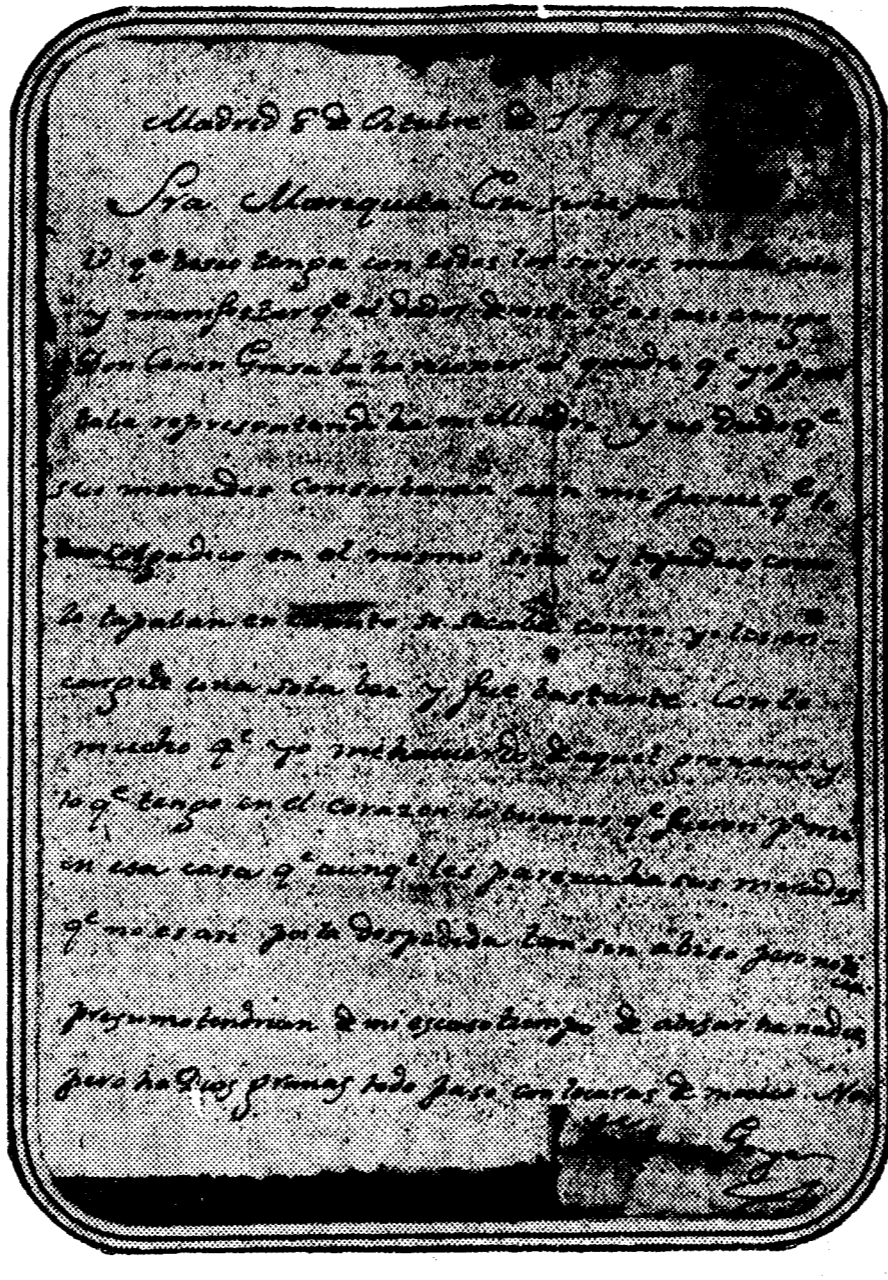 Madrid 8 de Octubre de 1776
Sra. Manquela. Con esta para
V qe deseo tenga con todos los suyos mucha salud
y manifestar qe el dador de esta qe es mi amigo
Don Grasa ba ha el quadro qe yo
representando ha mi Madre y no dudo qe
sus mercedes conserbaran aun me parece qe lo
en el mismo sitio y tapadico como
lo tapaban en se secaba como yo los en-
cargué una sola bez y fue bastante. Con lo
mucho qe yo me hacuerdo de aquel y
lo qe tengo en el corazon lo buenas qe fueron pa mi
en esa casa qe aunqe les parezca ha sus mercedes
qe no es asi por la despedida tan sin abiso pero
presumo tendrian de mi escaso tiempo de abisar ha nadie
pero ha Dios gracias todo paso con de
Goya